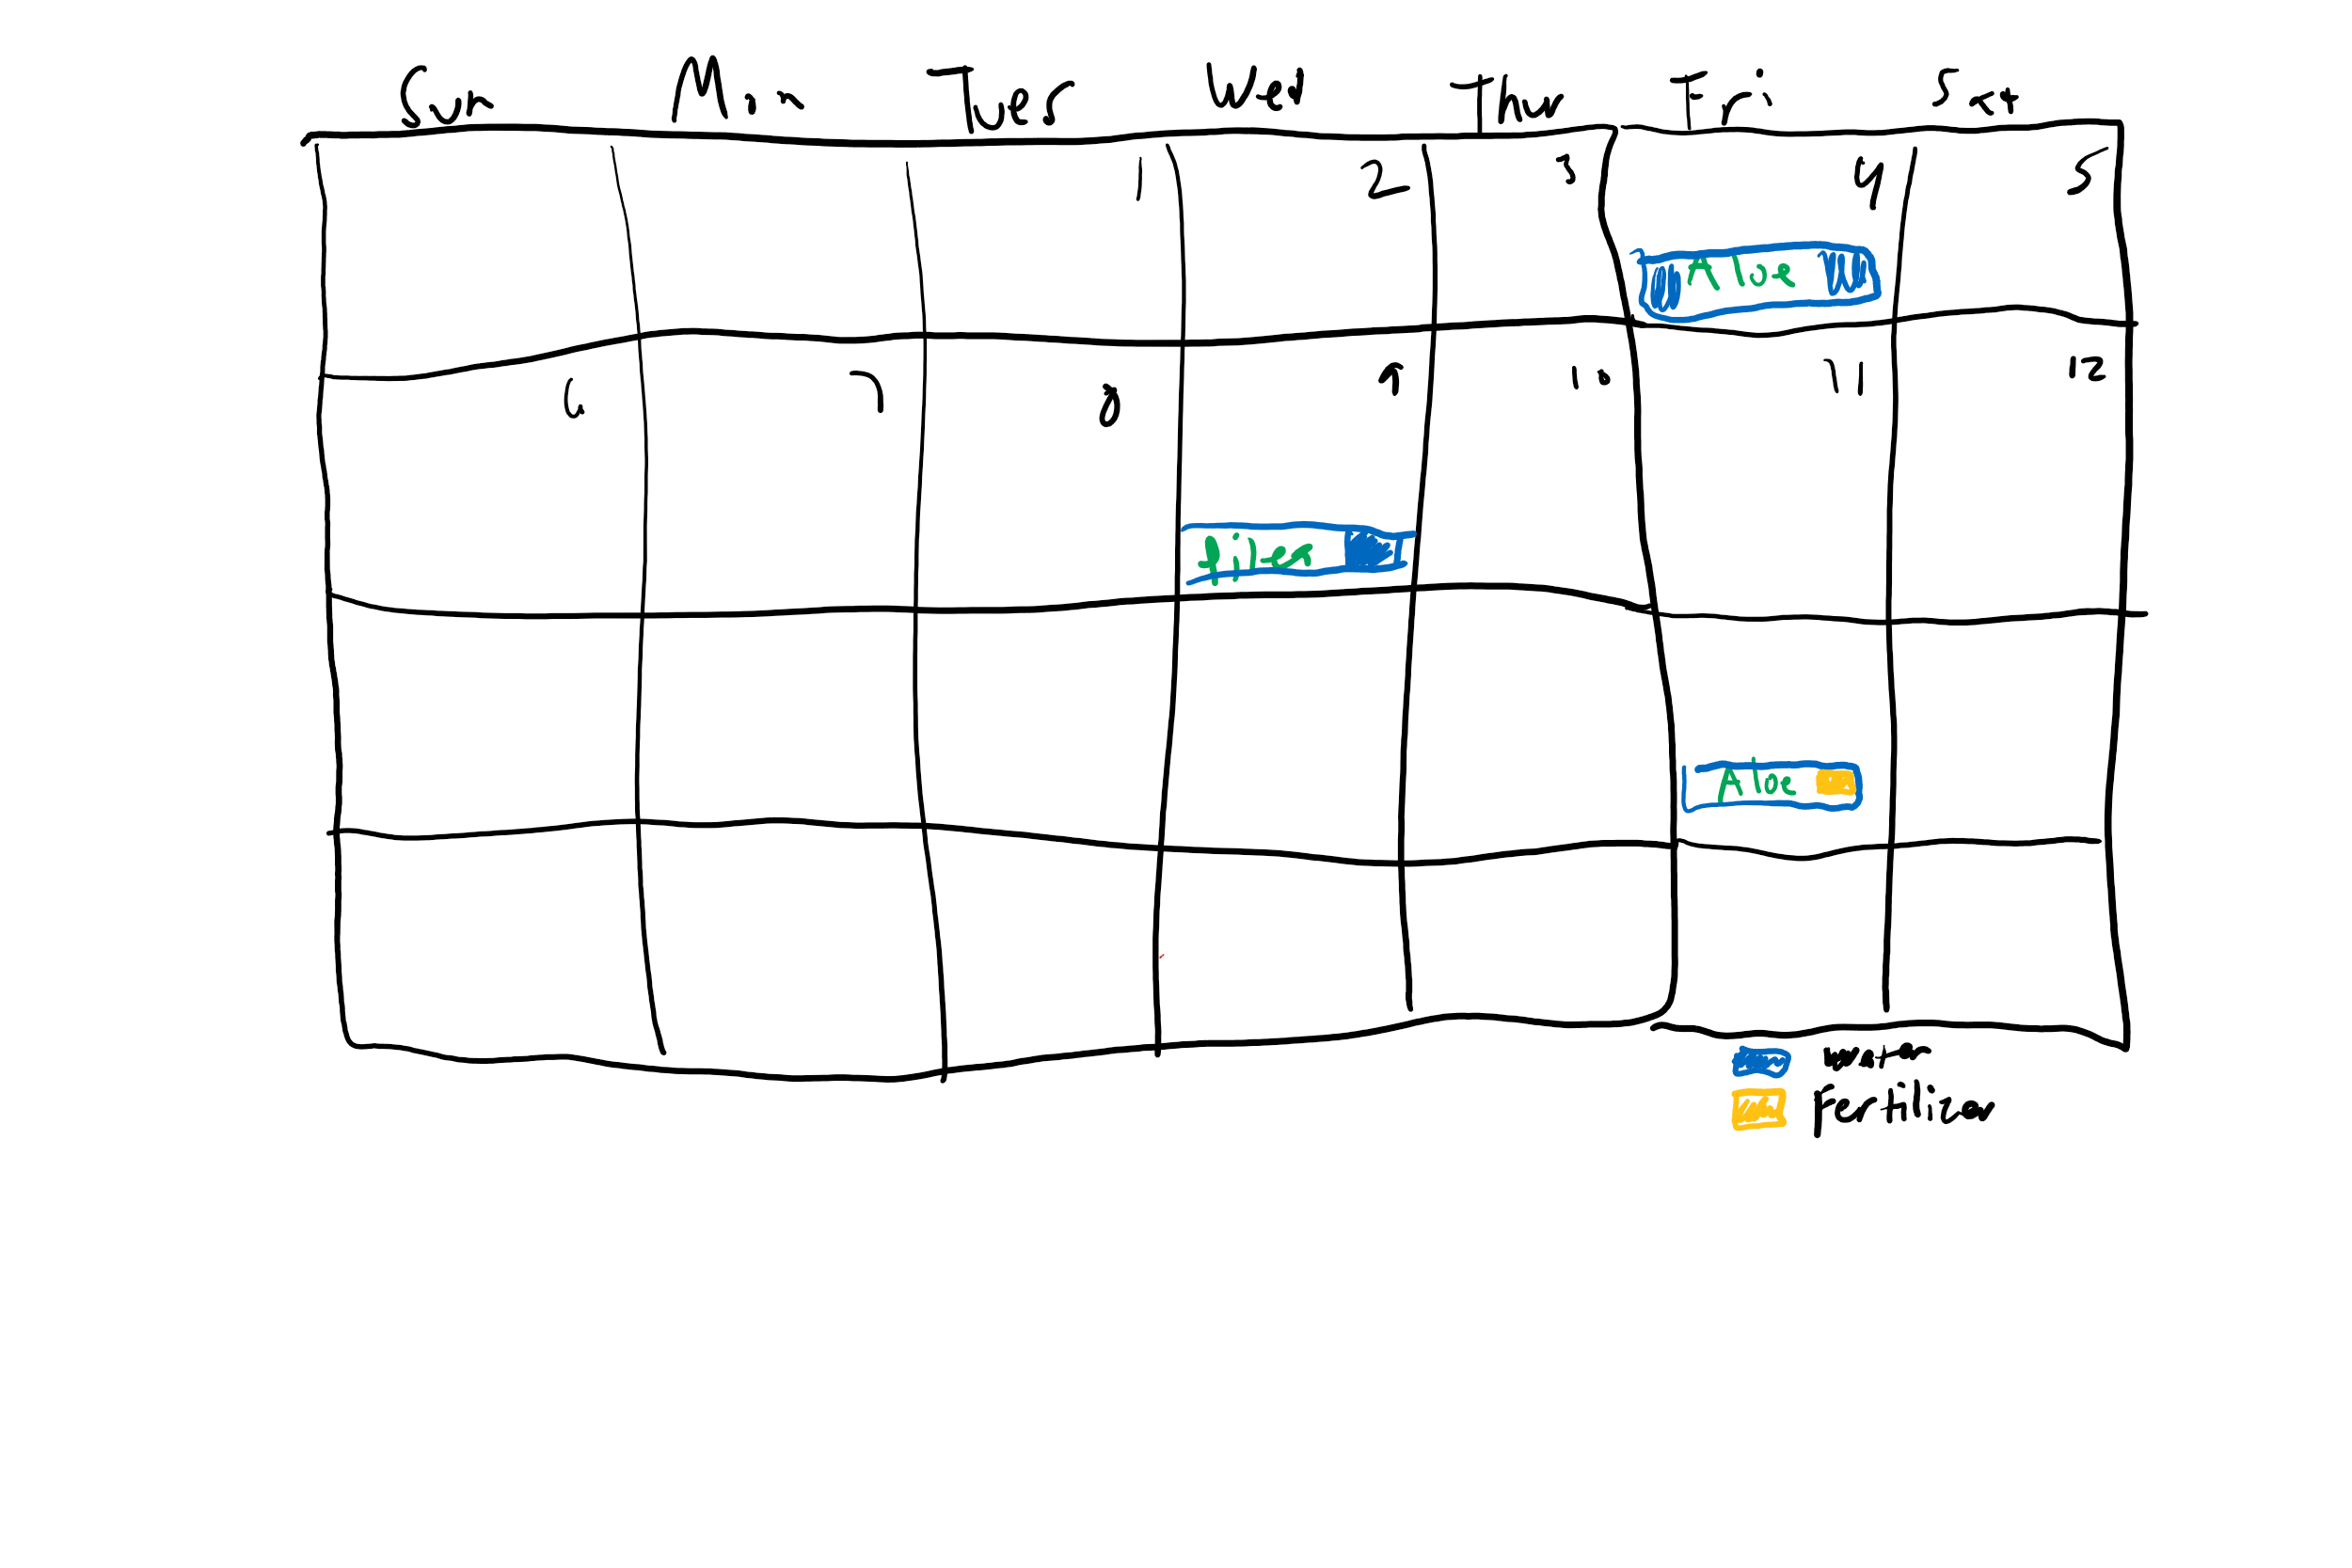 Sun Mon Tues Wed Thur Fri Sat
1 2 3 4 5
Aloe
6 7 8 9 10 11 12
Aloe
water
fertilizer